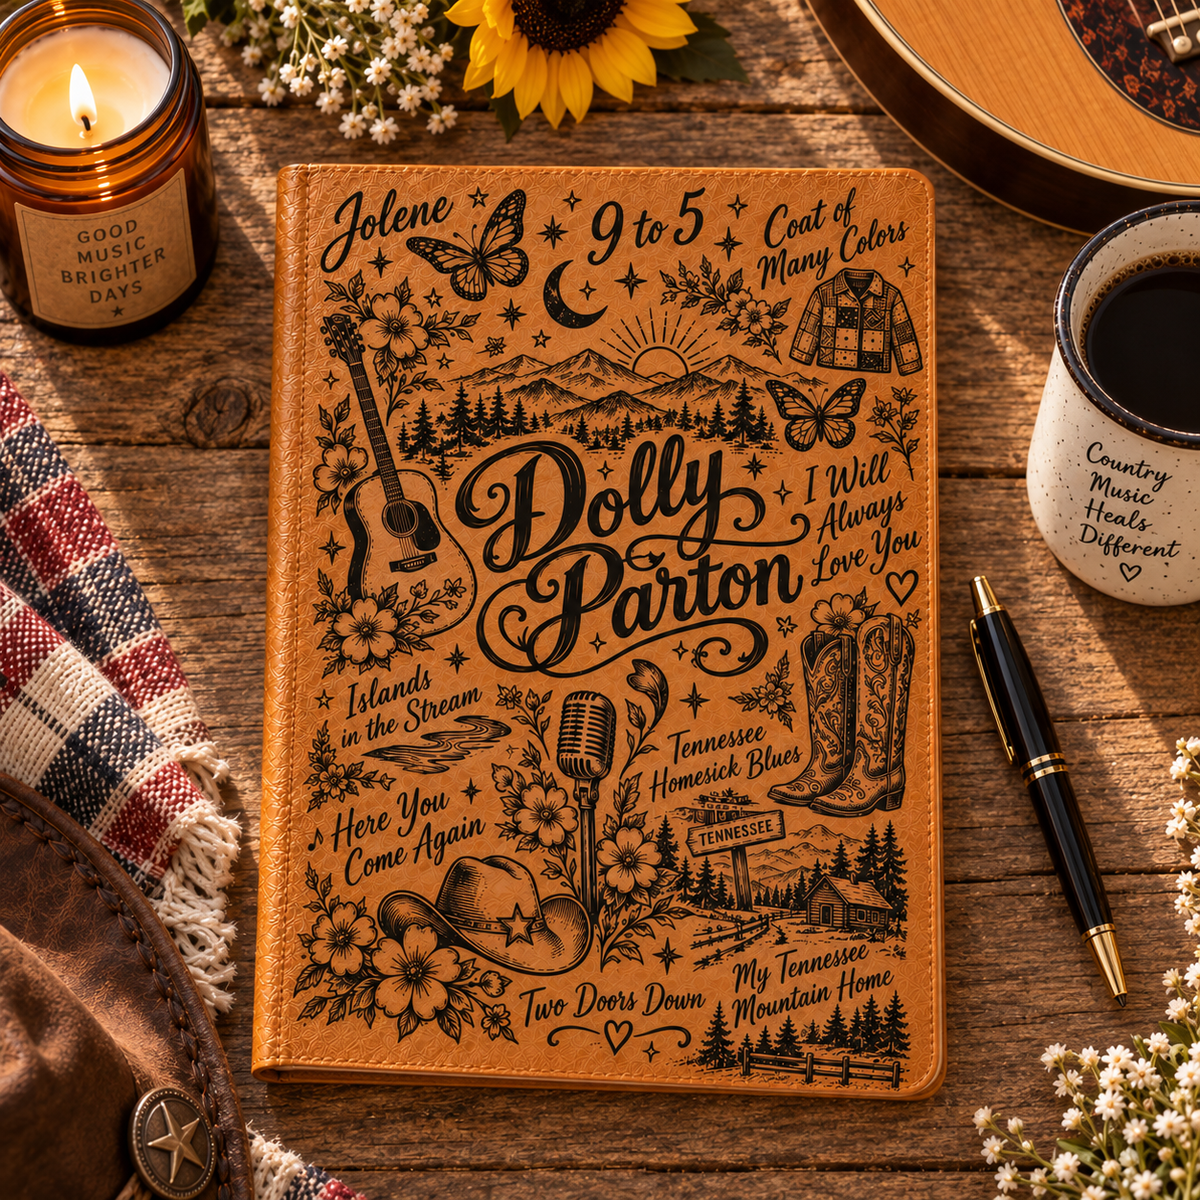 GOOD
MUSIC
BRIGHTER
DAYS
Jolene
9 to 5
Coat of
Many Colors
Dolly
Parton
I Will
Always
Love You
Islands
in the Stream
Tennessee
Homesick Blues
Here You
Come Again
TENNESSEE
My Tennessee
Mountain Home
Two Doors Down
Country
Music
Heals
Different